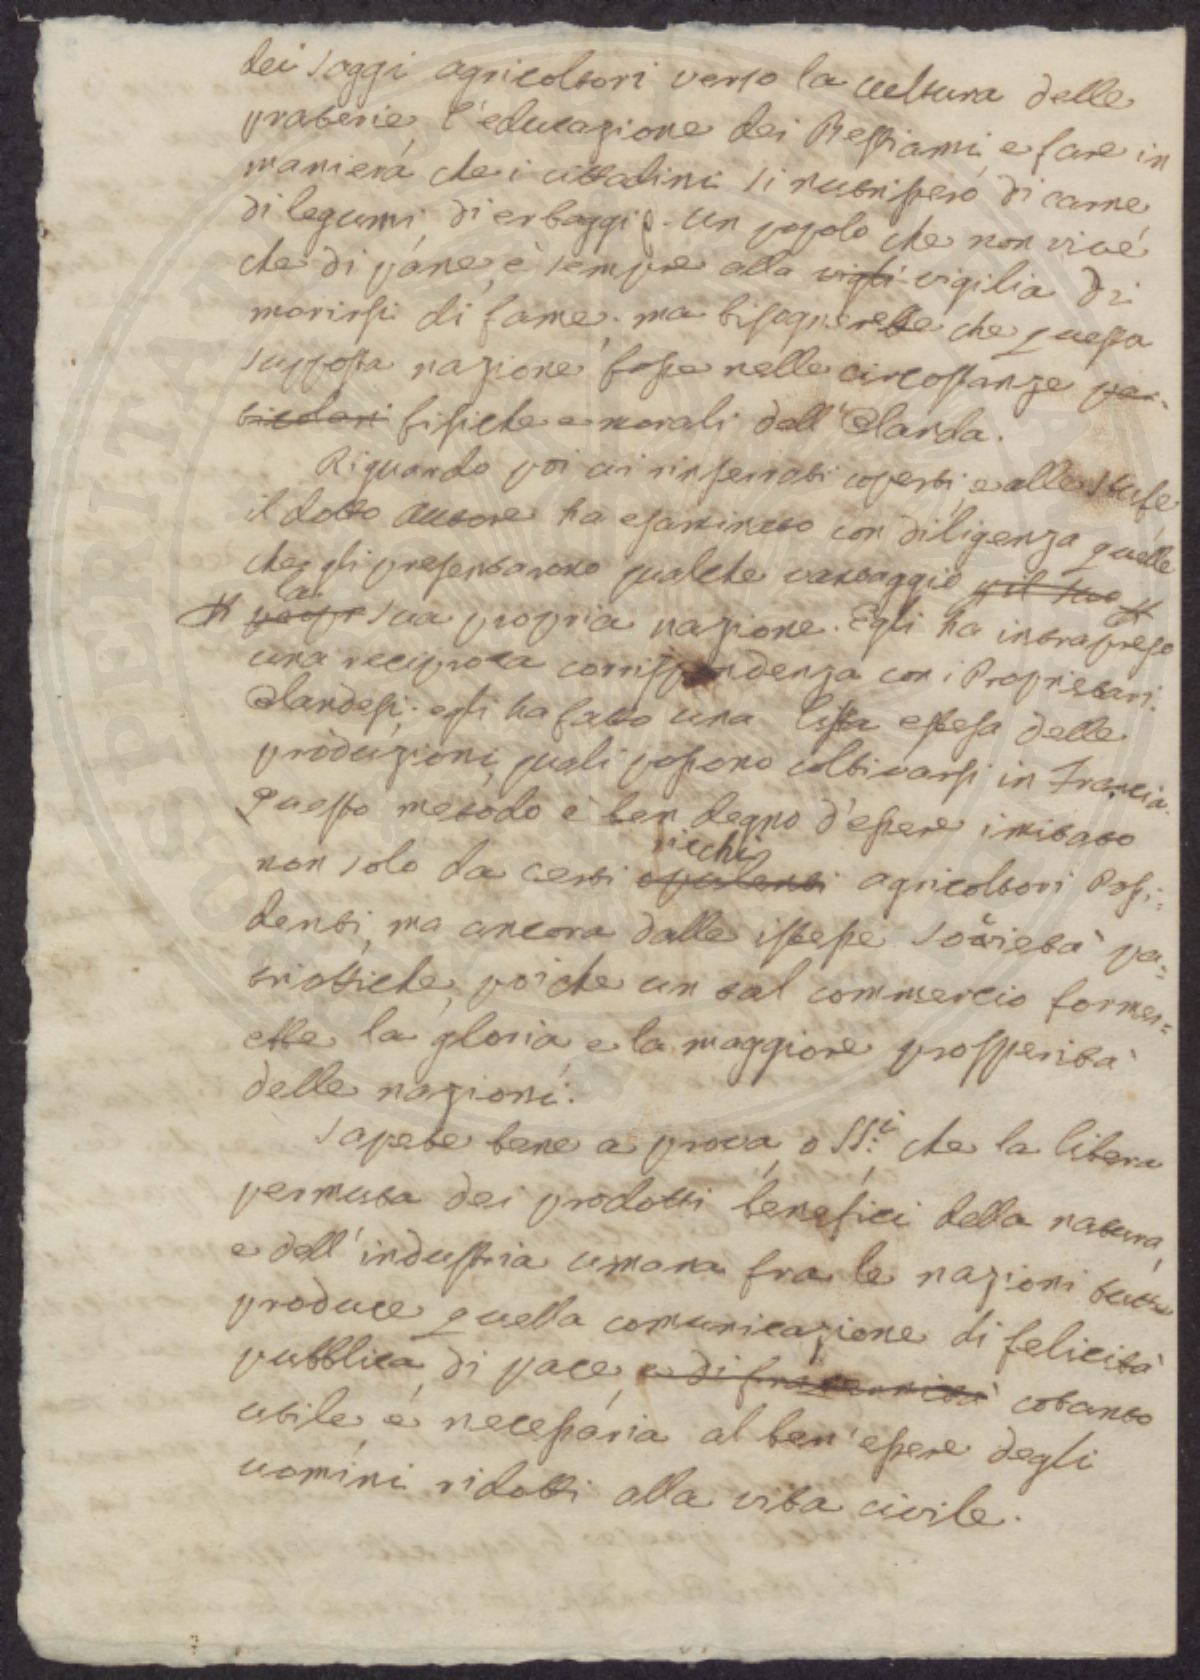 dei saggi agricoltori verso la cultura delle
praterie, l'educazione dei Bestiami, e fare in
maniera che i cittadini si nutrissero di carne
di legumi, di erbaggi. un popolo che non vive
che di pane, è sempre alla vigli vigilia di
morirsi di fame. ma bisognerebbe che questa
supposta nazione fosse nelle circostanze par-
ticolari fisiche e morali dell'Olanda.
Riguardo poi ai rinserrati coperti, e alle stufe
il dotto autore ha esaminato con diligenza quelle
che gli presentarono qualche vantaggio p il suo #
# propr la sua propria nazione. Egli ha intrapreso
una reciproca corrispondenza con i Proprietari
Olandesi. essi ha fatto una lista estesa delle
produzioni, quali possono coltivarsi in Francia.
Questo metodo è ben degno d'essere imitato
non solo da certi opulenti ricchi agricoltori Possi=
denti, ma ancora dalle istesse società pa=
triottiche, poiche un tal commercio forme=
ebbe la gloria e la maggiore prosperità
delle nazioni.
Sapete bene a prova, o SS.i che la libera
permuta dei prodotti benefici della natura,
e dell'industria umana fra le nazioni tutte
produce quella comunicazione di felicità
pubblica, di pace, e di fraternità cotanto
utile e necessaria al ben'essere degli
uomini ridotti alla vita civile.